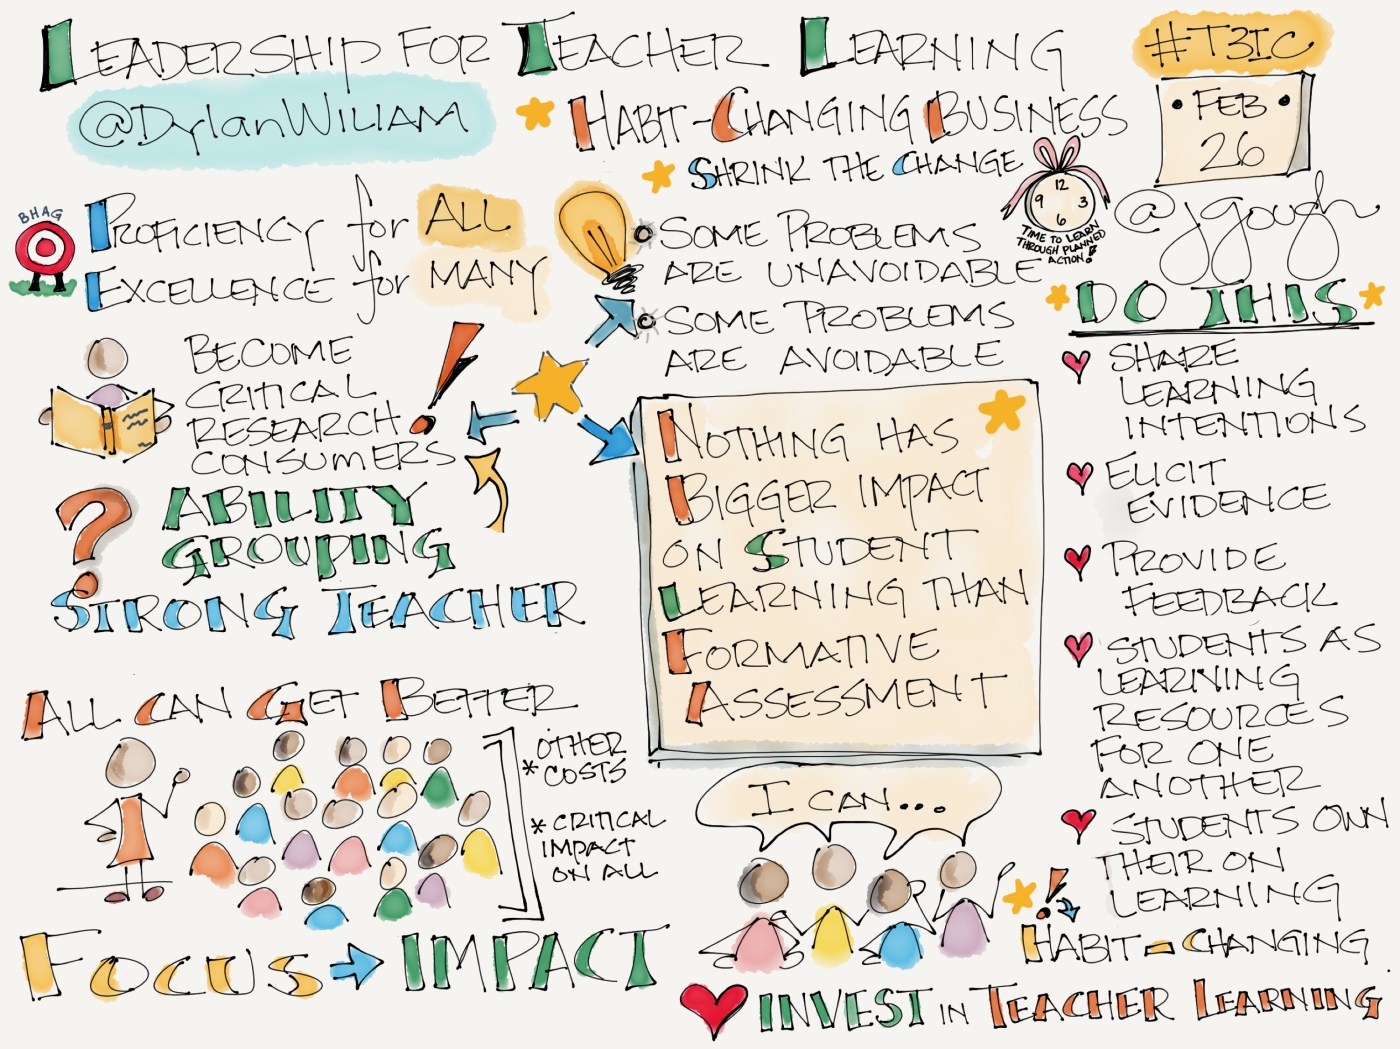 LEADERSHIP FOR TEACHER LEARNING
@DylanWILIAM
HABIT-CHANGING BUSINESS
SHRINK THE CHANGE
#T3IC
FEB
26
@jgough
12
9 3
6
TIME TO LEARN
THROUGH PLANNED
ACTION!
BHAG
PROFICIENCY for ALL
EXCELLENCE for MANY
SOME PROBLEMS
ARE UNAVOIDABLE
SOME PROBLEMS
ARE AVOIDABLE
BECOME
CRITICAL
RESEARCH
CONSUMERS
!
? ABILITY
GROUPING
STRONG TEACHER
NOTHING HAS
BIGGER IMPACT
ON STUDENT
LEARNING THAN
FORMATIVE
ASSESSMENT
DO THIS
SHARE
LEARNING
INTENTIONS
ELICIT
EVIDENCE
PROVIDE
FEEDBACK
STUDENTS AS
LEARNING
RESOURCES
FOR ONE
ANOTHER
STUDENTS OWN
THEIR ON
LEARNING
!
HABIT-CHANGING
ALL CAN GET BETTER
* OTHER
COSTS
* CRITICAL
IMPACT
ON ALL
FOCUS → IMPACT
I CAN...
INVEST IN TEACHER LEARNING